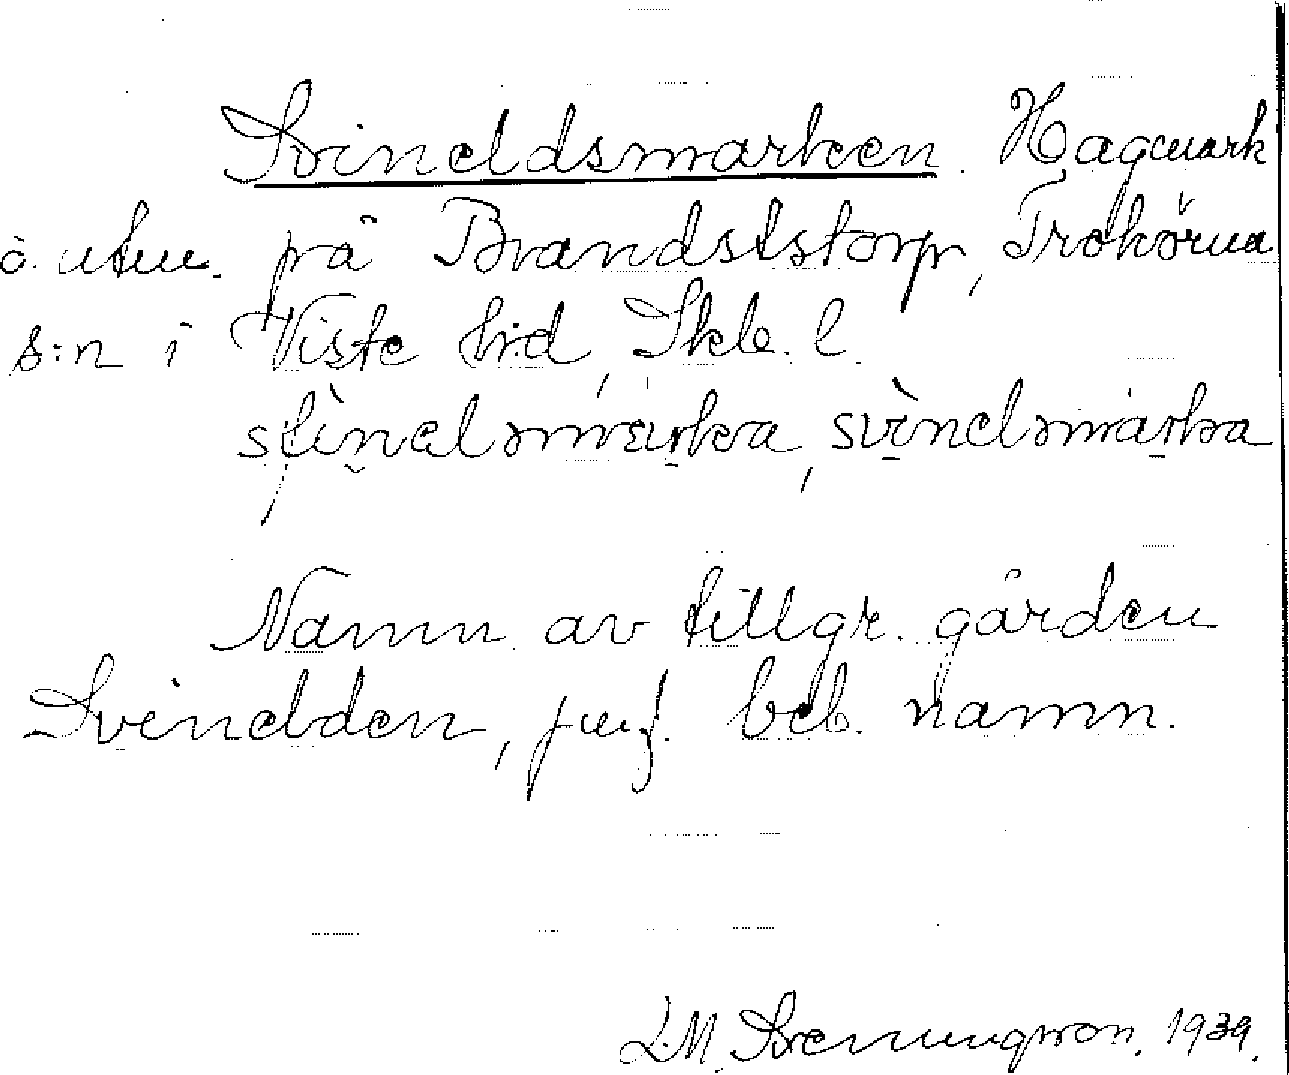 Svineldsmarken. Hagmark
ö. utm. på Brandstorp, Trökörna
s:n i Viste h:d, Skb. l.
svìnelsmarka, svìnelsmarka
Namn av tillgr. gården
Svinelden, jmf. beb. namn.
L.M. Svenungsson. 1939.